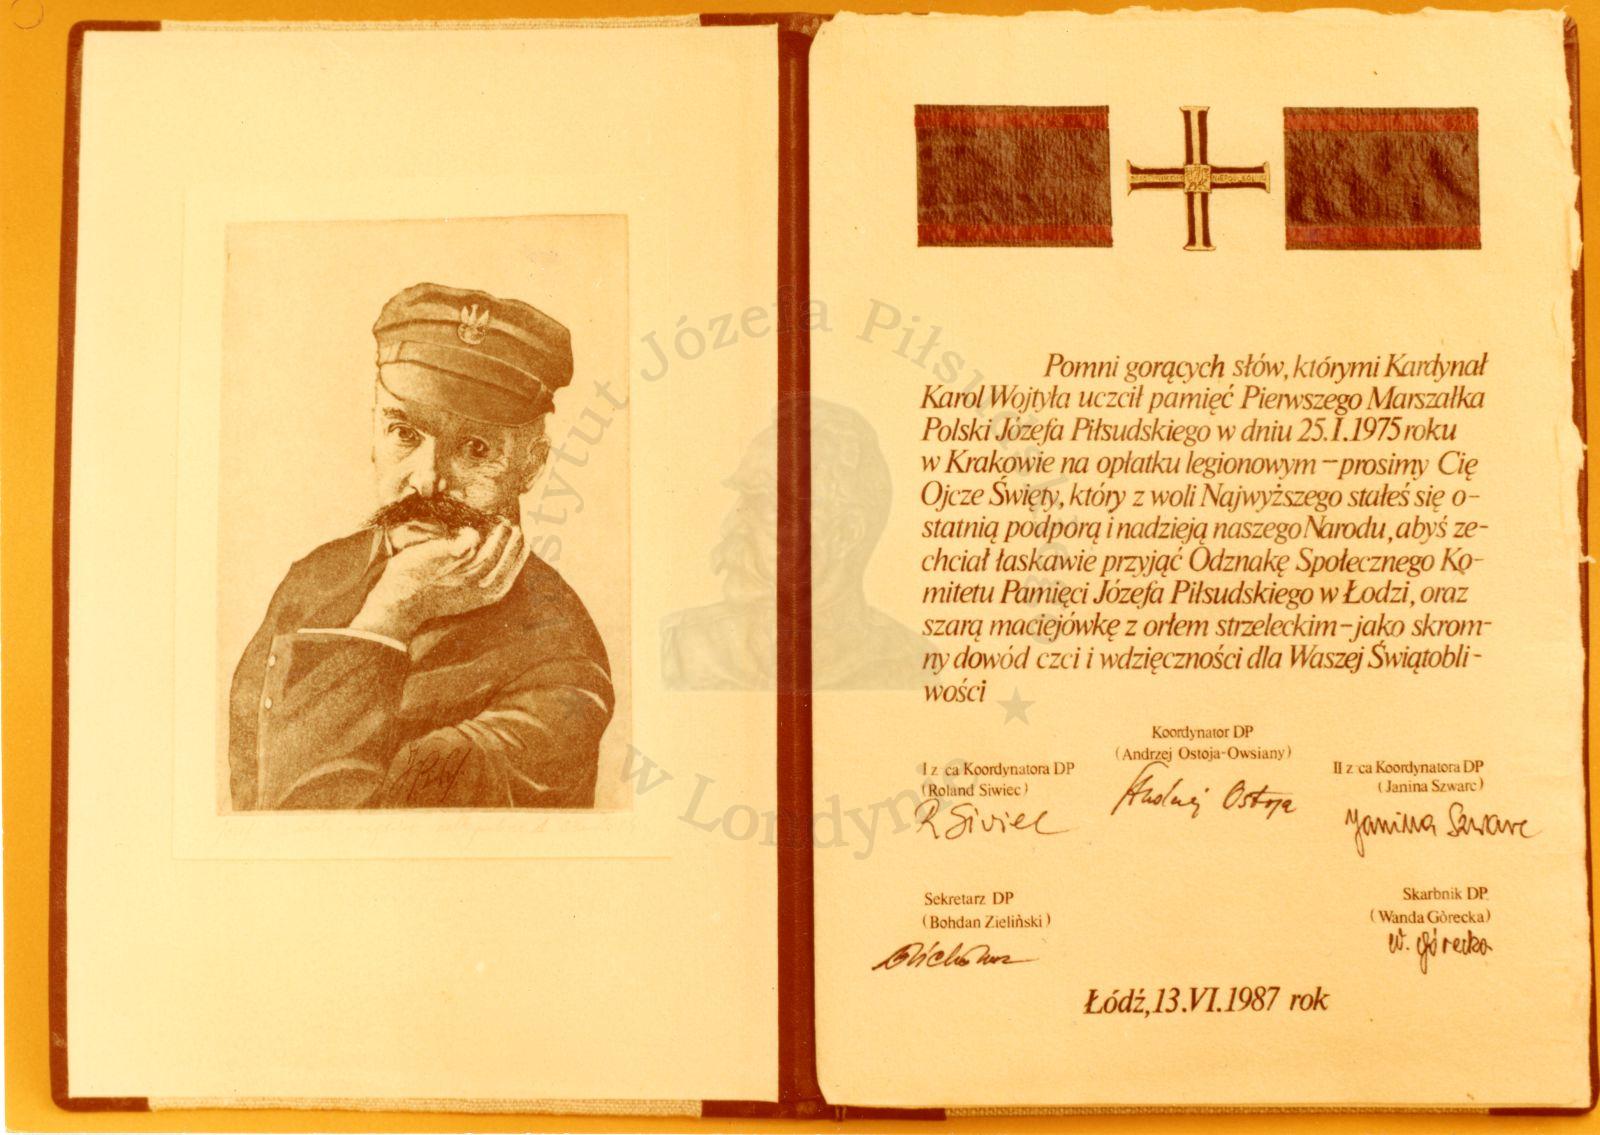 Pomni gorących słów, którymi Kardynał
Karol Wojtyła uczcił pamięć Pierwszego Marszałka
Polski Józefa Piłsudskiego w dniu 25.I.1975 roku
w Krakowie na opłatku legionowym – prosimy Cię
Ojcze Święty, który z woli Najwyższego stałeś się o-
statnią podporą i nadzieją naszego Narodu, abyś ze-
chciał łaskawie przyjąć Odznakę Społecznego Ko-
mitetu Pamięci Józefa Piłsudskiego w Łodzi, oraz
szarą maciejówkę z orłem strzeleckim – jako skrom-
ny dowód czci i wdzięczności dla Waszej Świątobli-
wości
Koordynator DP
(Andrzej Ostoja-Owsiany)
Andrzej Ostoja
I z ca Koordynatora DP
(Roland Siwiec)
R Siwiec
II z ca Koordynatora DP
(Janina Szwarc)
Janina Szwarc
Sekretarz DP
(Bohdan Zieliński)
Skarbnik DP.
(Wanda Górecka)
W. Górecka
Łódź, 13.VI.1987 rok
Instytut Józefa Piłsudskiego
w Londynie